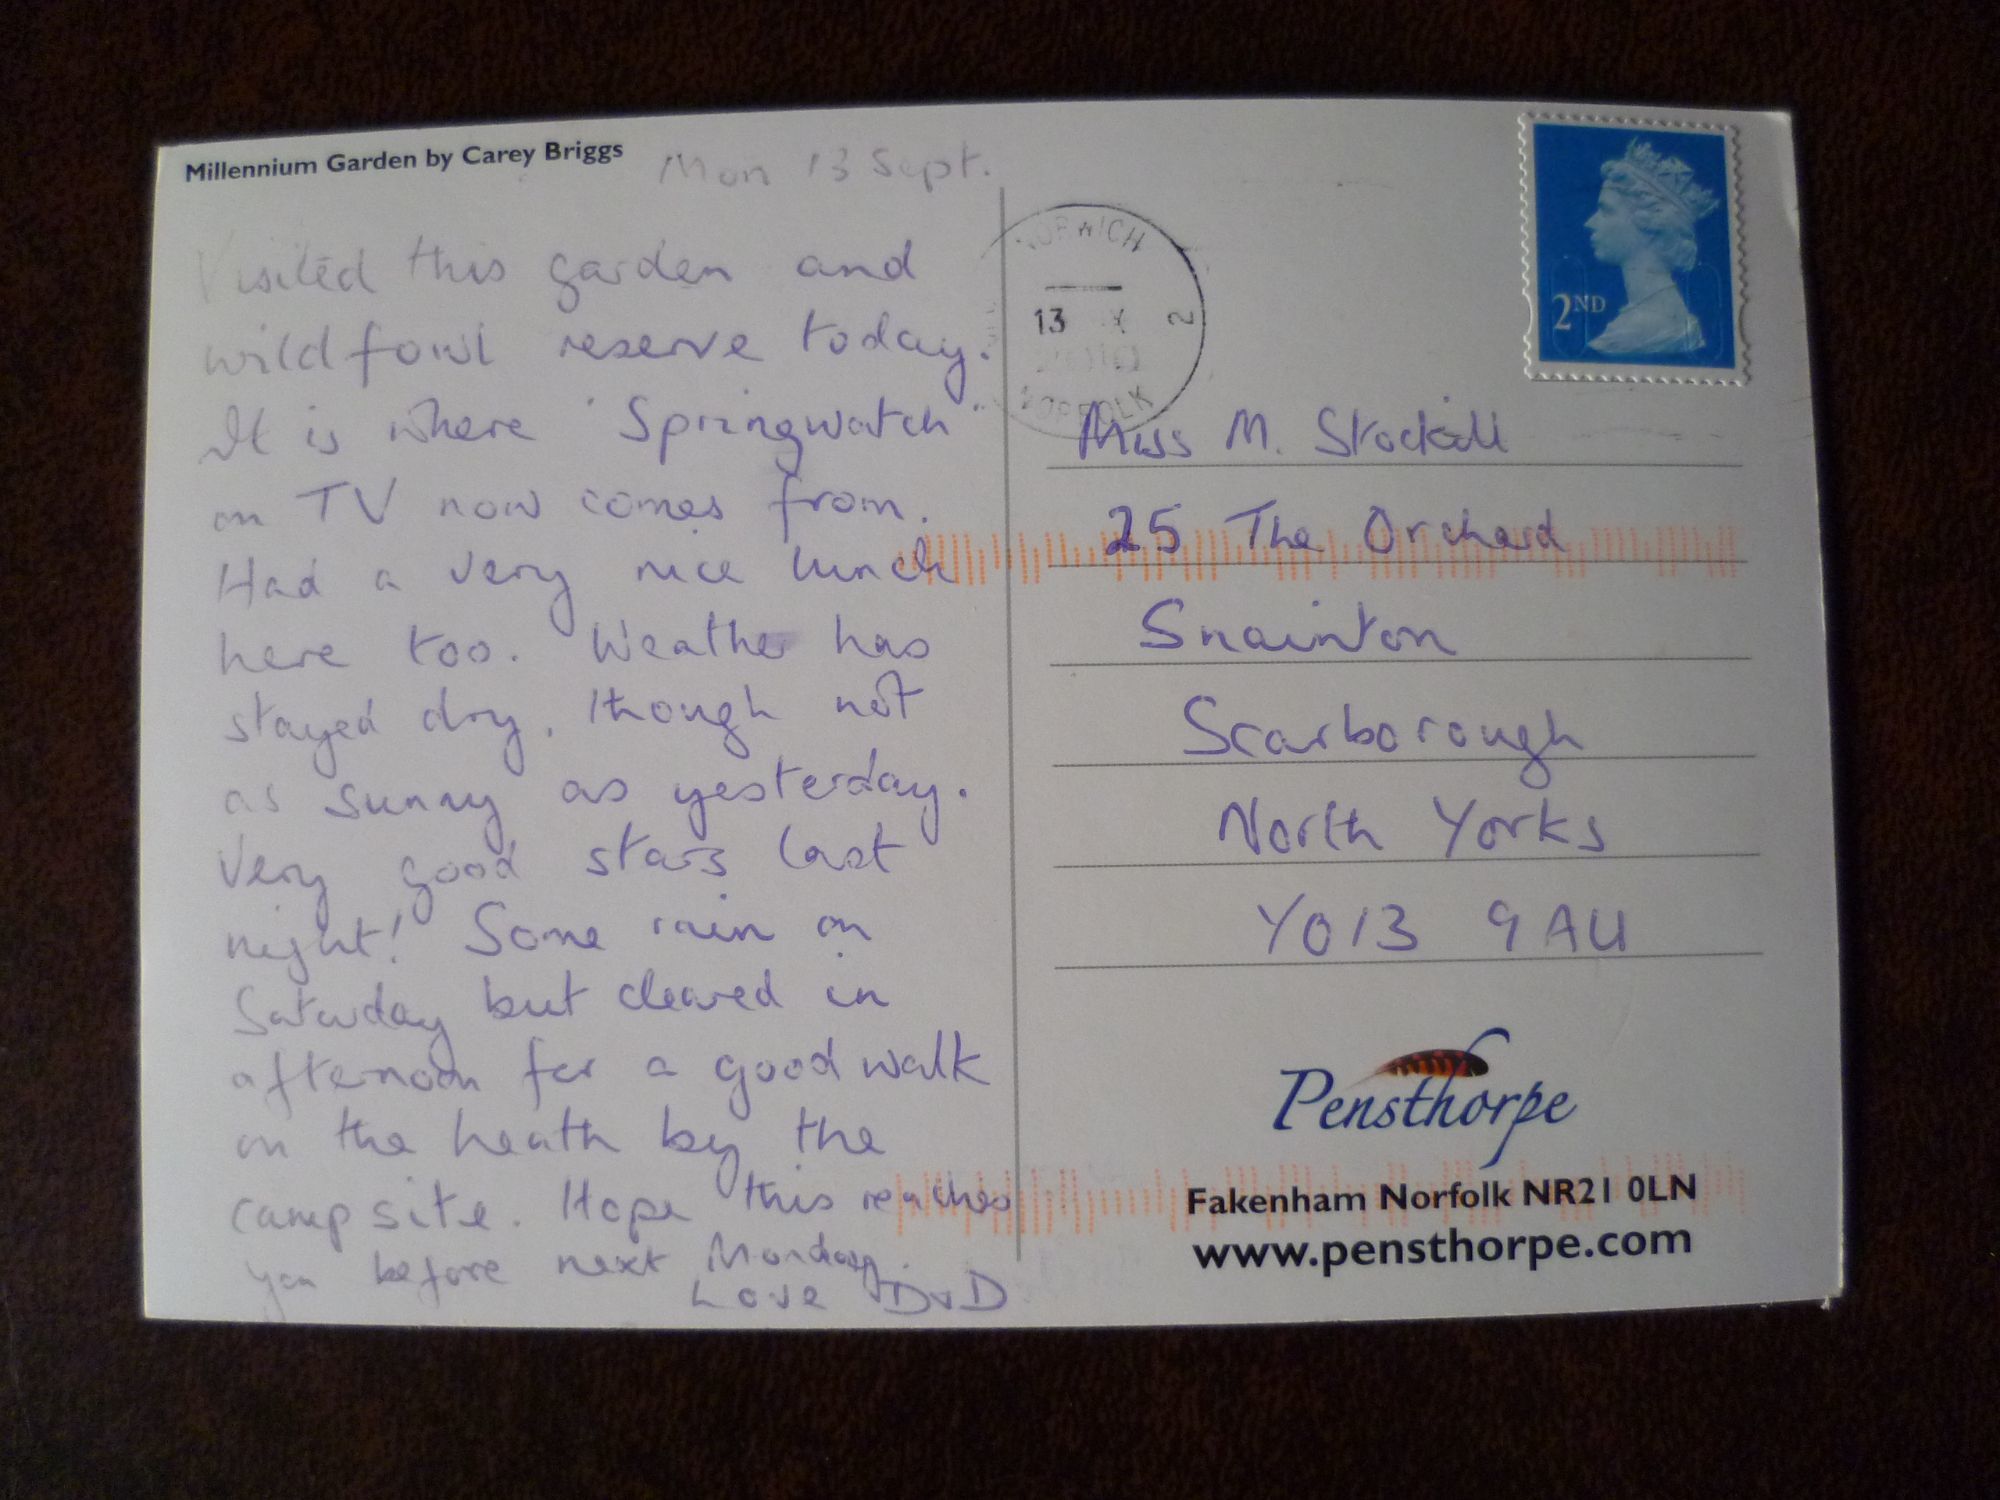 Millennium Garden by Carey Briggs
Mon 13 Sept.
Visited this garden and
wildfowl reserve today.
It is where 'Springwatch'
on TV now comes from.
Had a very nice lunch
here too. Weather has
stayed dry, though not
as sunny as yesterday.
Very good stars last
night! Some rain on
Saturday but cleared in
afternoon for a good walk
on the heath by the
camp site. Hope this reaches
you before next Monday.
Love D & D
NORWICH
13
2
NORFOLK
2ND
Miss M.
25 The Orchard
Snainton
Scarborough
North Yorks
YO13 9AU
Pensthorpe
Fakenham Norfolk NR21 0LN
www.pensthorpe.com